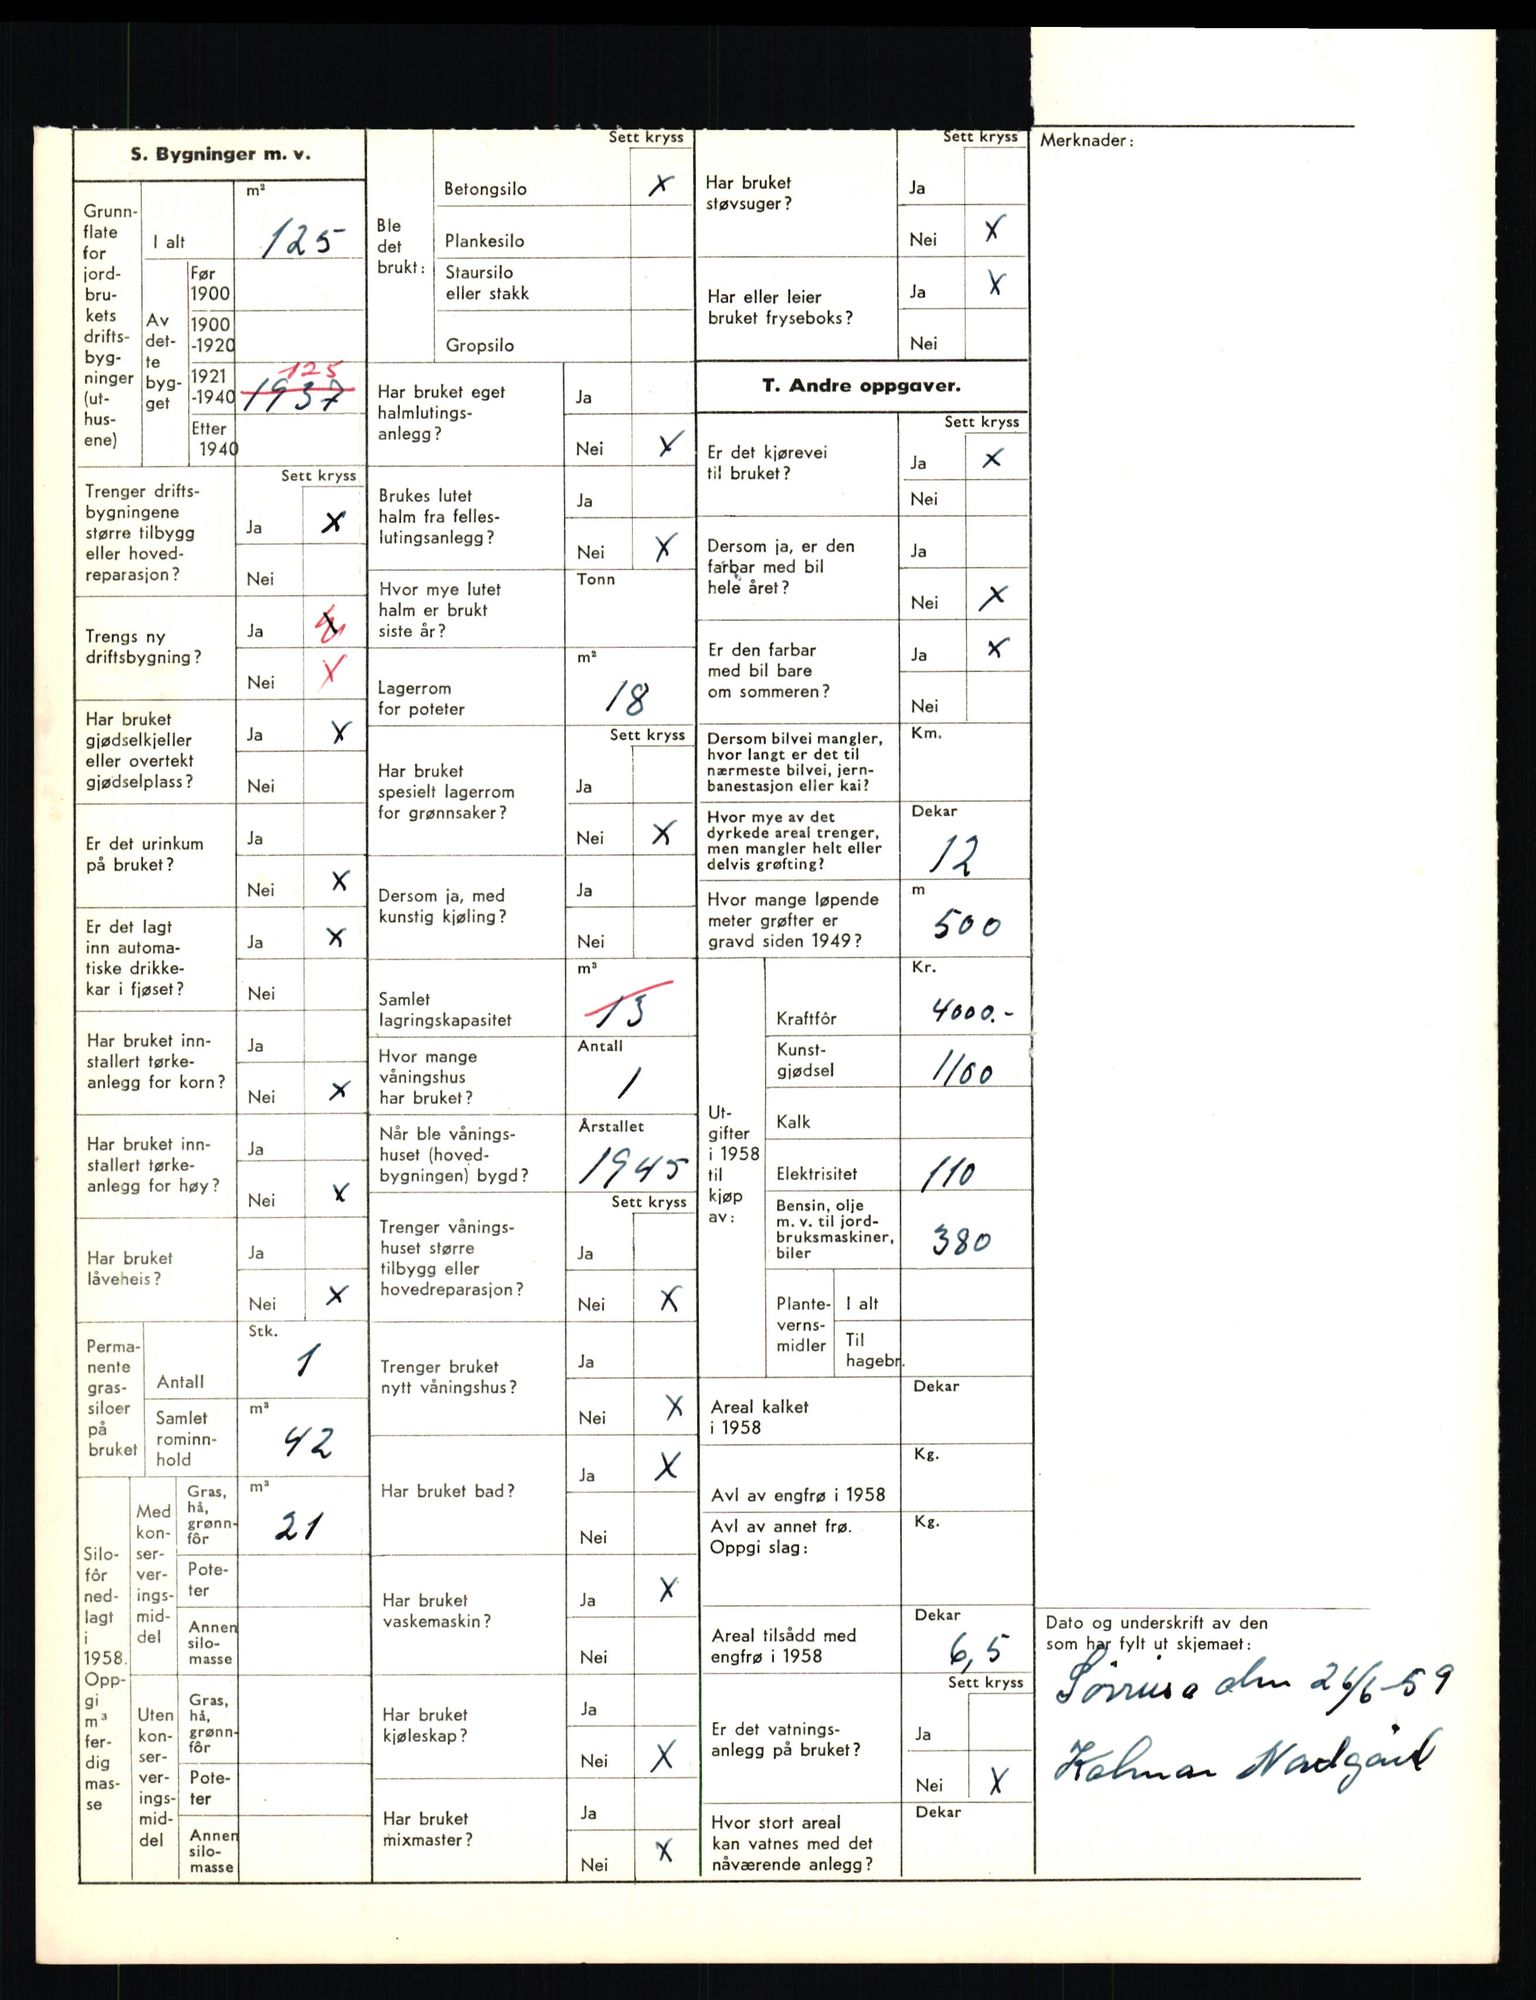 S. Bygninger m. v.
Grunn-
flate
for
jord-
bru-
kets
drifts-
byg-
ninger
(ut-
hus-
ene)
I alt
m²
125
Av
det-
te
byg-
get
Før
1900
1900
-1920
1921
-1940
125
1937
Etter
1940
Sett kryss
Trenger drifts-
bygningene
større tilbygg
eller hoved-
reparasjon?
Ja X
Nei
Trengs ny
driftsbygning?
Ja X
Nei X
Har bruket
gjødselkjeller
eller overtekt
gjødselplass?
Ja X
Nei
Er det urinkum
på bruket?
Ja
Nei X
Er det lagt
inn automa-
tiske drikke-
kar i fjøset?
Ja X
Nei
Har bruket inn-
stallert tørke-
anlegg for korn?
Ja
Nei X
Har bruket inn-
stallert tørke-
anlegg for høy?
Ja
Nei X
Har bruket
låveheis?
Ja
Nei X
Perma-
nente
gras-
siloer
på
bruket
Stk.
Antall 1
Samlet
rominn-
hold
m³
42
Silo-
fôr
ned-
lagt
i
1958.
Opp-
gi
m³
fer-
dig
mas-
se
Med
kon-
ser-
ver-
ings-
mid-
del
Gras,
hå,
grønn-
fôr
m³
21
Pote-
ter
Annen
silo-
masse
Uten
kon-
ser-
ver-
ings-
mid-
del
Gras,
hå,
grønn-
fôr
Pote-
ter
Annen
silo-
masse
Sett kryss
Ble
det
brukt:
Betongsilo X
Plankesilo
Staursilo
eller stakk
Gropsilo
Har bruket eget
halmlutings-
anlegg?
Ja
Nei X
Brukes lutet
halm fra felles-
lutingsanlegg?
Ja
Nei X
Hvor mye lutet
halm er brukt
siste år?
Tonn
Lagerrom
for poteter
m²
18
Sett kryss
Har bruket
spesielt lagerrom
for grønnsaker?
Ja
Nei X
Dersom ja, med
kunstig kjøling?
Ja
Nei
Samlet
lagringskapasitet
m³
13
Hvor mange
våningshus
har bruket?
Antall
1
Når ble vånings-
huset (hoved-
bygningen) bygd?
Årstallet
1945
Sett kryss
Trenger vånings-
huset større
tilbygg eller
hovedreparasjon?
Ja
Nei X
Trenger bruket
nytt våningshus?
Ja
Nei X
Har bruket bad?
Ja X
Nei
Har bruket
vaskemaskin?
Ja X
Nei
Har bruket
kjøleskap?
Ja
Nei X
Har bruket
mixmaster?
Ja
Nei X
Sett kryss
Har bruket
støvsuger?
Ja
Nei X
Har eller leier
bruket fryseboks?
Ja X
Nei
T. Andre oppgaver.
Sett kryss
Er det kjørevei
til bruket?
Ja X
Nei
Dersom ja, er den
farbar med bil
hele året?
Ja
Nei X
Er den farbar
med bil bare
om sommeren?
Ja X
Nei
Dersom bilvei mangler,
hvor langt er det til
nærmeste bilvei, jern-
banestasjon eller kai?
Km.
Hvor mye av det
dyrkede areal trenger,
men mangler helt eller
delvis grøfting?
Dekar
12
Hvor mange løpende
meter grøfter er
gravd siden 1949?
m
500
Ut-
gifter
i 1958
til
kjøp
av:
Kr.
Kraftfôr 4000.-
Kunst-
gjødsel
1100
Kalk
Elektrisitet 110
Bensin, olje
m. v. til jord-
bruksmaskiner,
biler
380
Plante-
verns-
midler
I alt
Til
hagebr.
Areal kalket
i 1958
Dekar
Avl av engfrø i 1958
Kg.
Avl av annet frø.
Oppgi slag:
Kg.
Areal tilsådd med
engfrø i 1958
Dekar
6,5
Sett kryss
Er det vatnings-
anlegg på bruket?
Ja
Nei X
Hvor stort areal
kan vatnes med det
nåværende anlegg?
Dekar
Merknader:
Dato og underskrift av den
som har fylt ut skjemaet:
26/6-59
Kolmar Nordgård